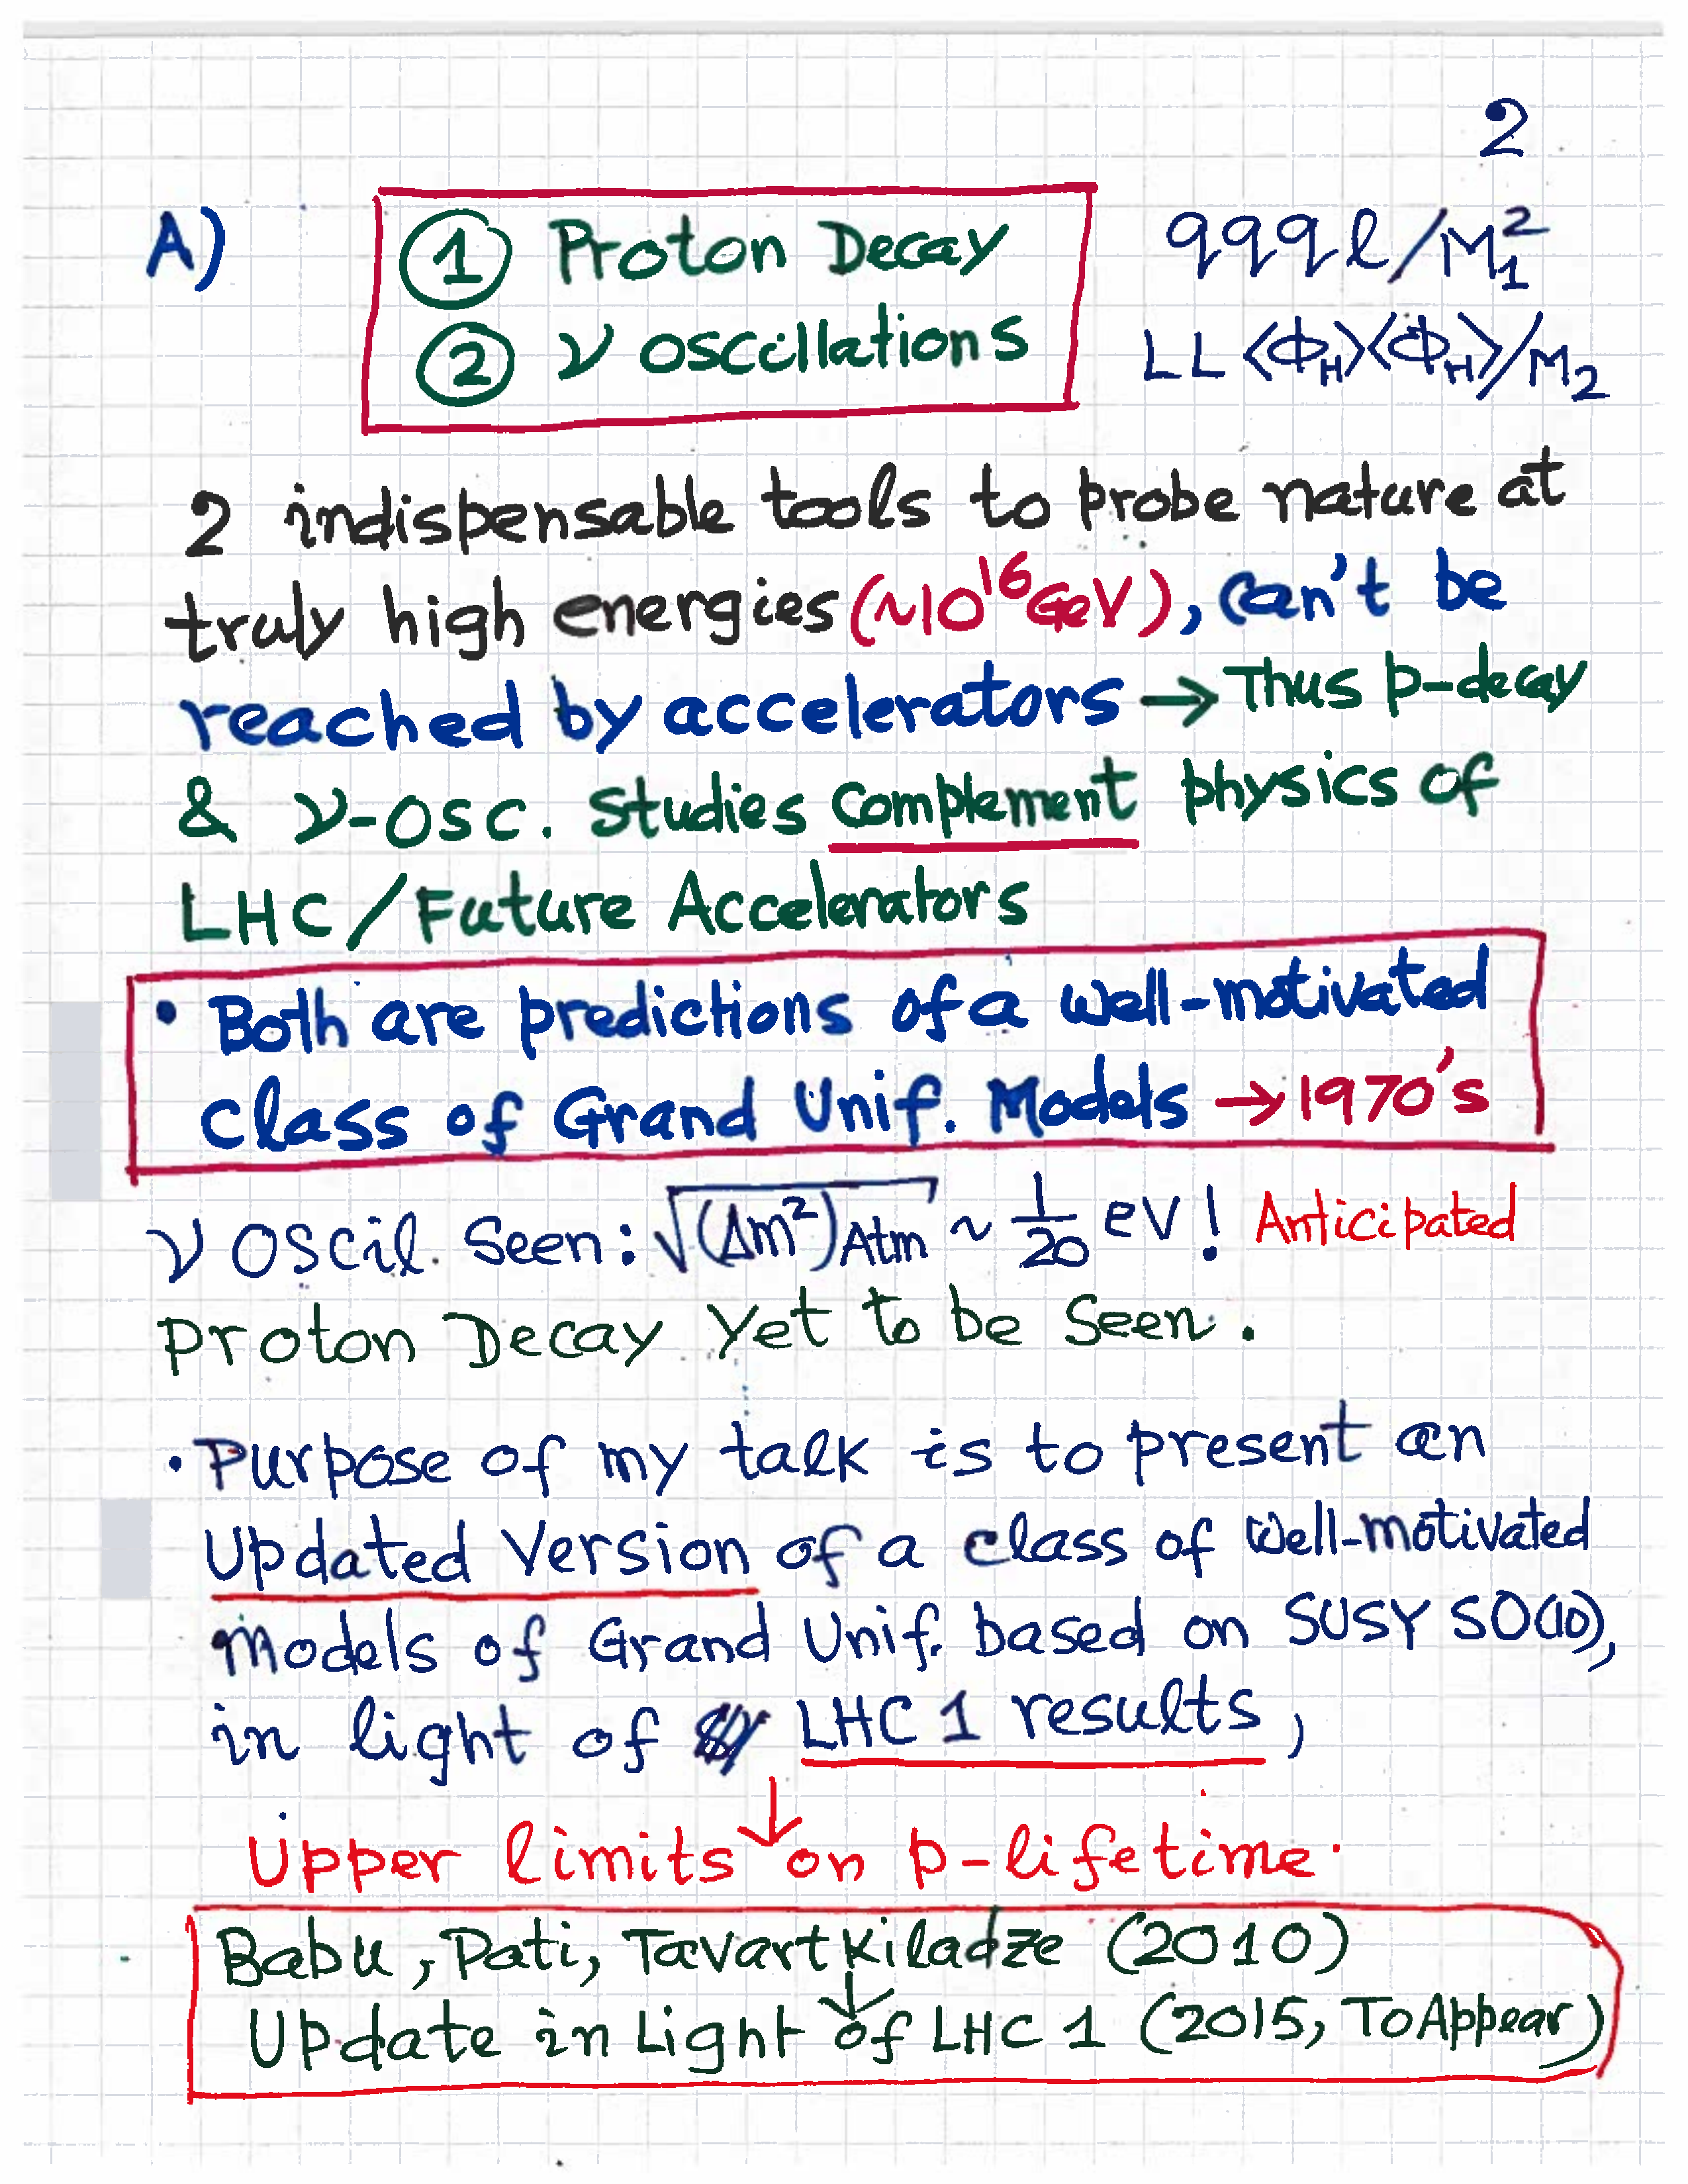 2
A) ① Proton Decay qqql/M₁²
② ν oscillations LL<Φ_H><Φ_H>/M₂
2 indispensable tools to probe nature at
truly high energies (~10¹⁶ GeV), can't be
reached by accelerators → Thus p-decay
& ν-osc. Studies complement physics of
LHC/Future Accelerators
• Both are predictions of a well-motivated
class of Grand Unif. Models → 1970's
ν oscil. Seen: √(Δm²)Atm ~ 1/20 eV! Anticipated
Proton Decay Yet to be Seen.
• Purpose of my talk is to present an
Updated Version of a class of well-motivated
models of Grand Unif. based on SUSY SO(10),
in light of LHC 1 results,
↓
Upper limits on p-lifetime.
Babu, Pati, Tavartkiladze (2010)
↓
Update in Light of LHC 1 (2015, To Appear)